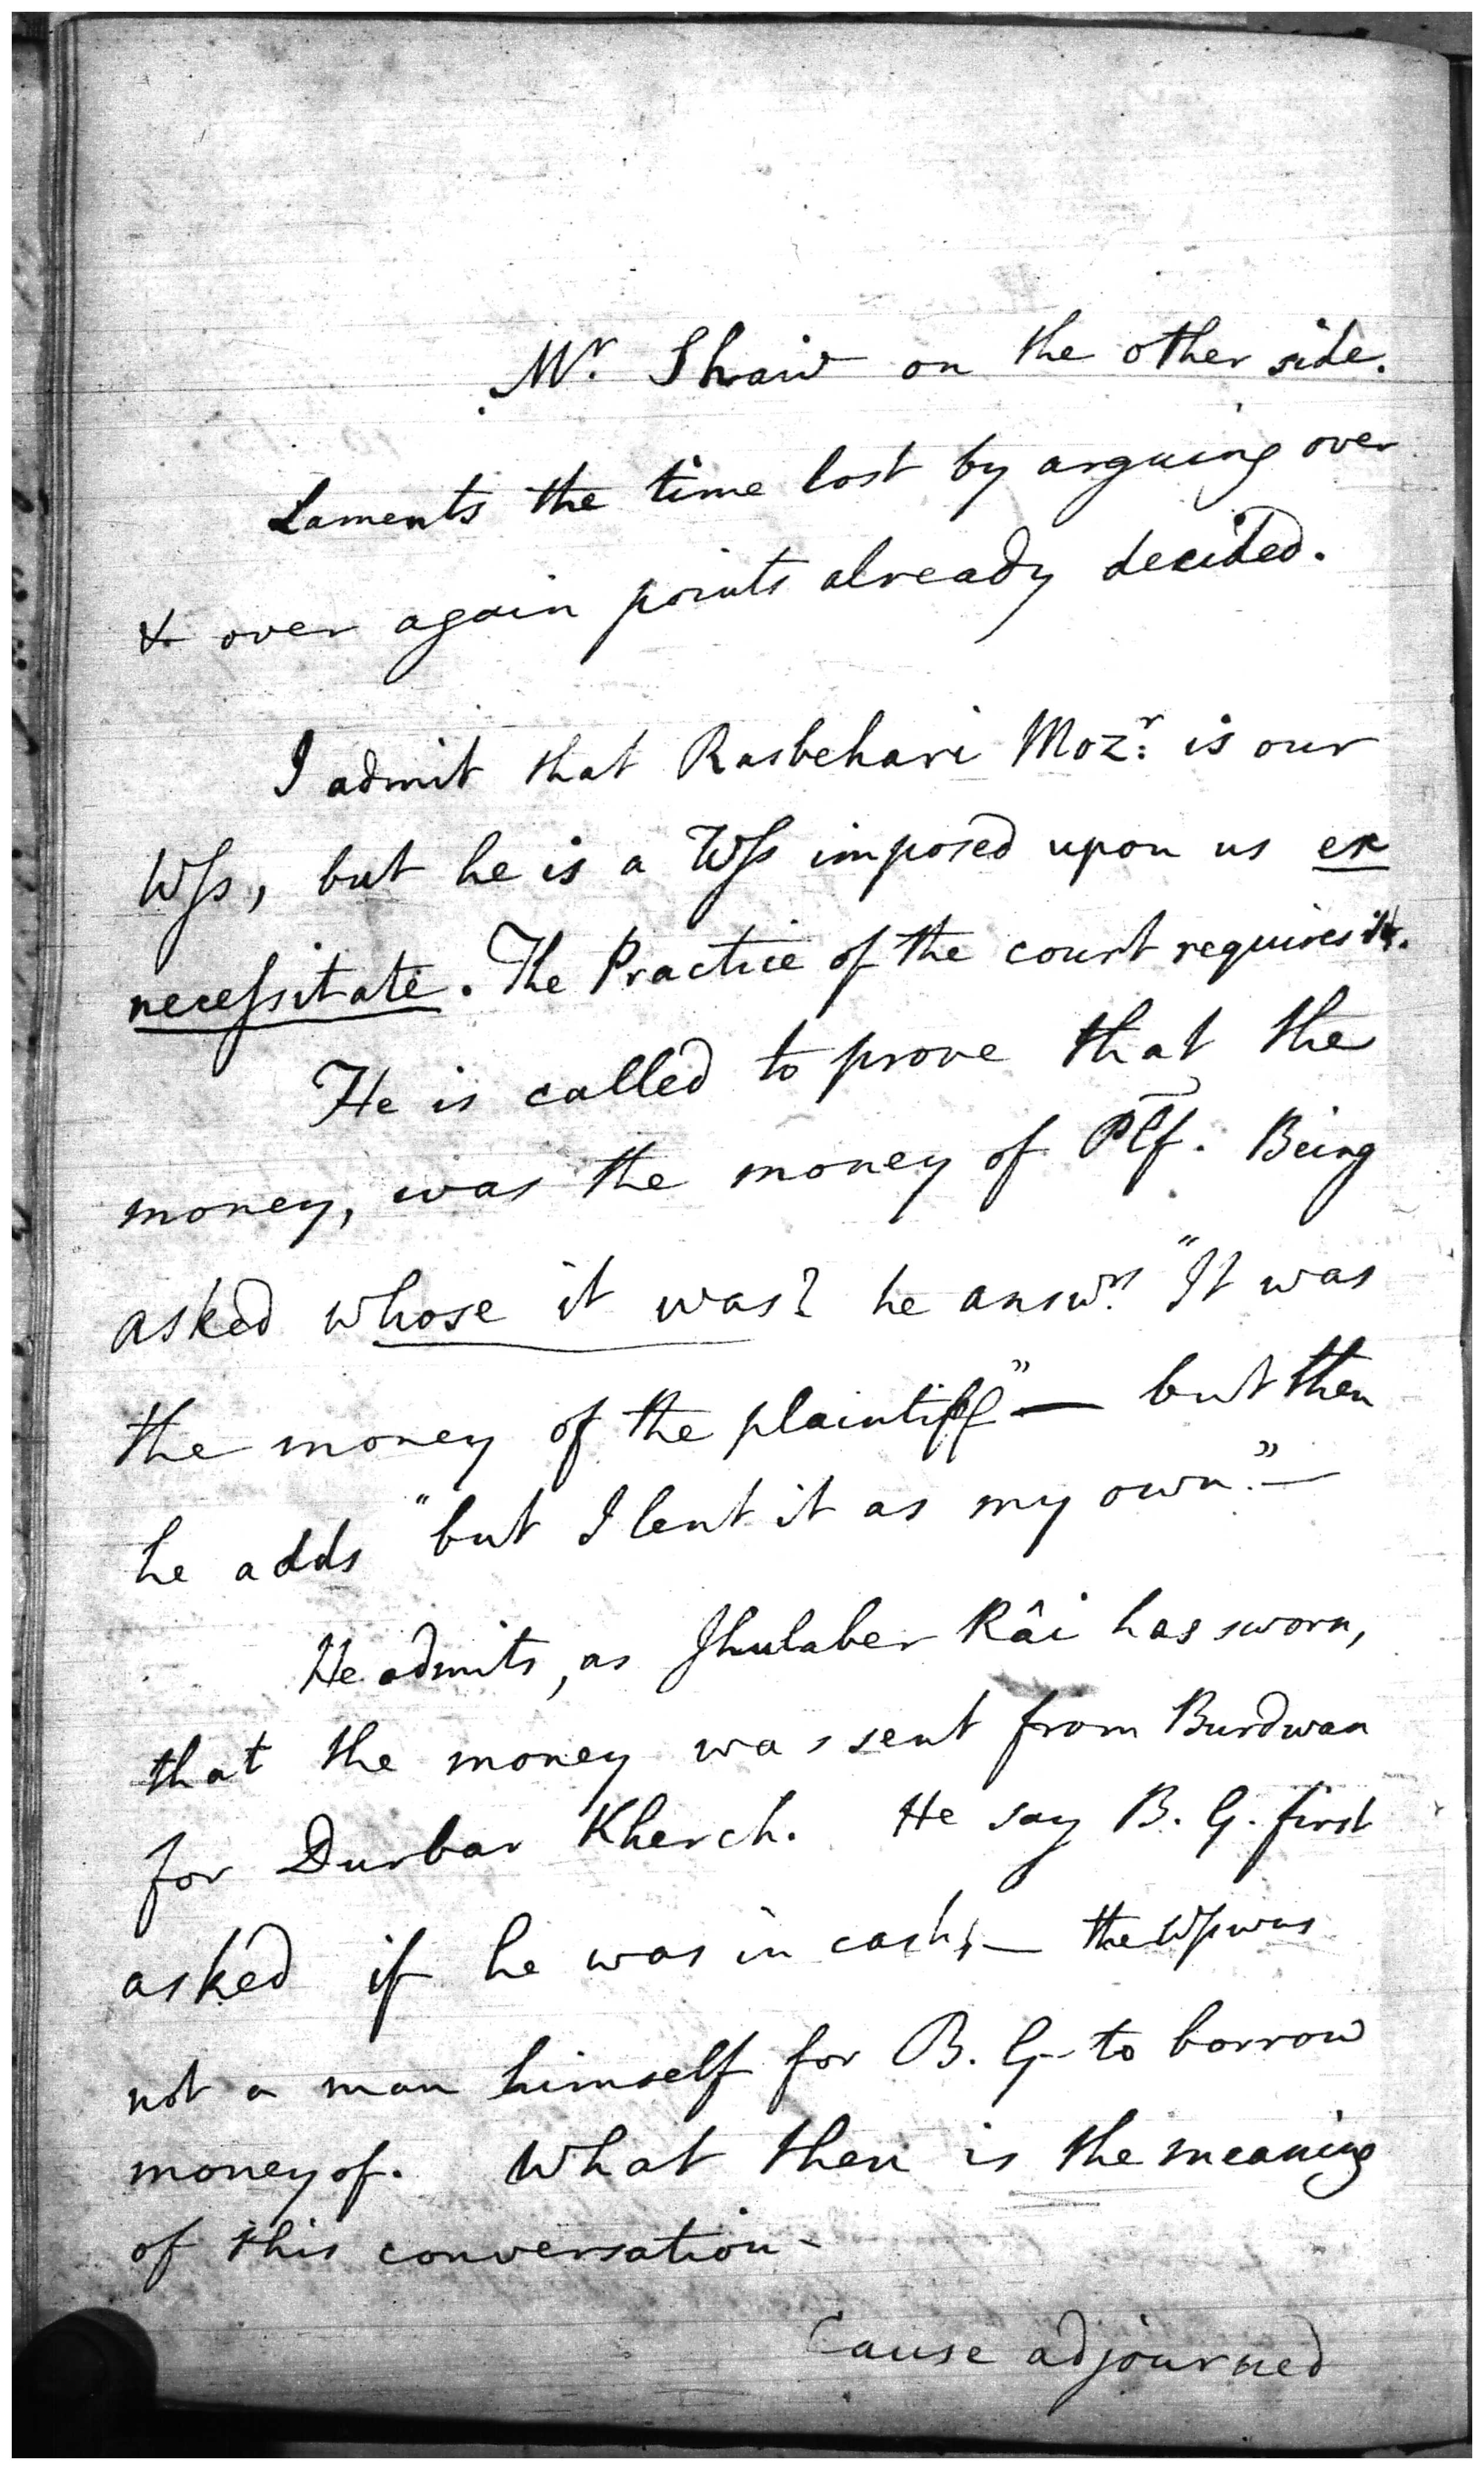 Mr. Shaw on the other side.
Laments the time lost by arguing over
& over again points already decided.
I admit that Rasbehari Mozr. is our
Wss, but he is a Wss imposed upon us ex
necessitate. The Practice of the court requires it.
He is called to prove that the
money, was the money of Plf. Being
asked whose it was? he answrs. "It was
the money of the plaintiff" — but then
he adds "but I lent it as my own." —
He admits, as Jhulaber Râi has sworn,
that the money was sent from Burdwan
for Durbar Kherch. He say B. G. first
asked if he was in cash, — the Wss was
not a man himself for B. G. to borrow
money of. What then is the meaning
of this conversation -
Cause adjourned